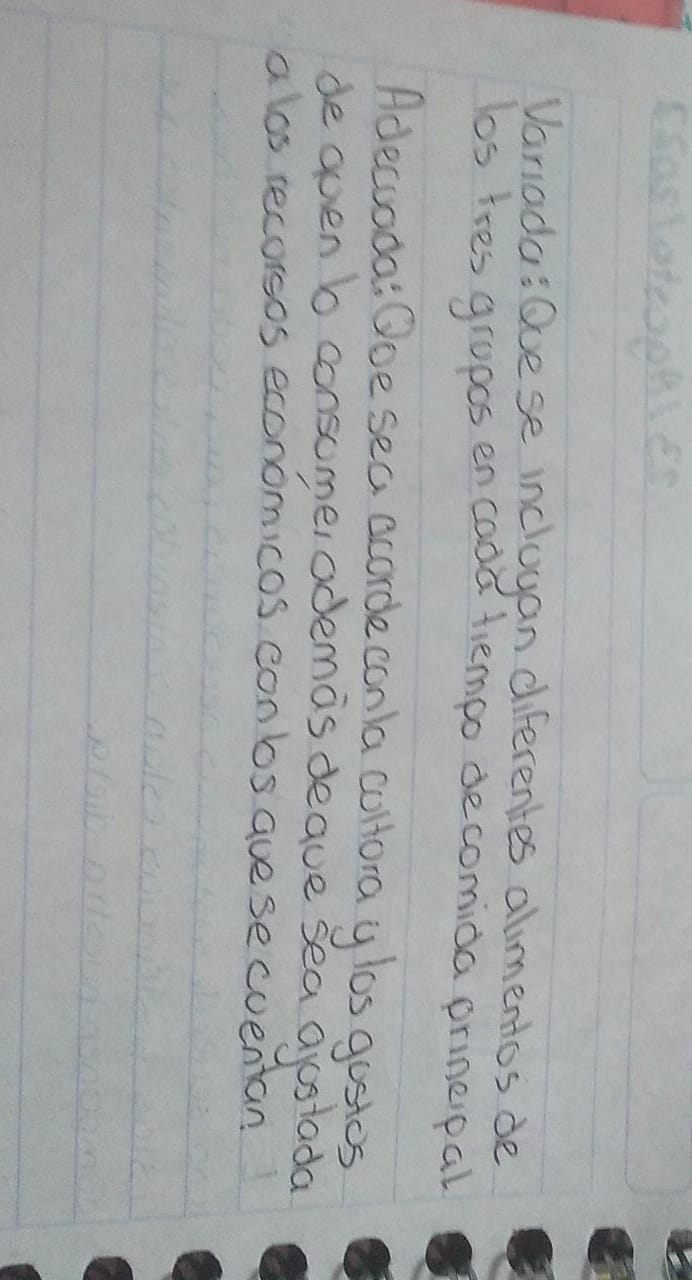 Variada: Que se incluyan diferentes alimentos de
los tres grupos en cada tiempo de comida principal
Adecuada: Que sea acorde con la cultura y los gustos
de quien lo consume, además de que sea ajustada
a los recursos economicos con los que se cuentan